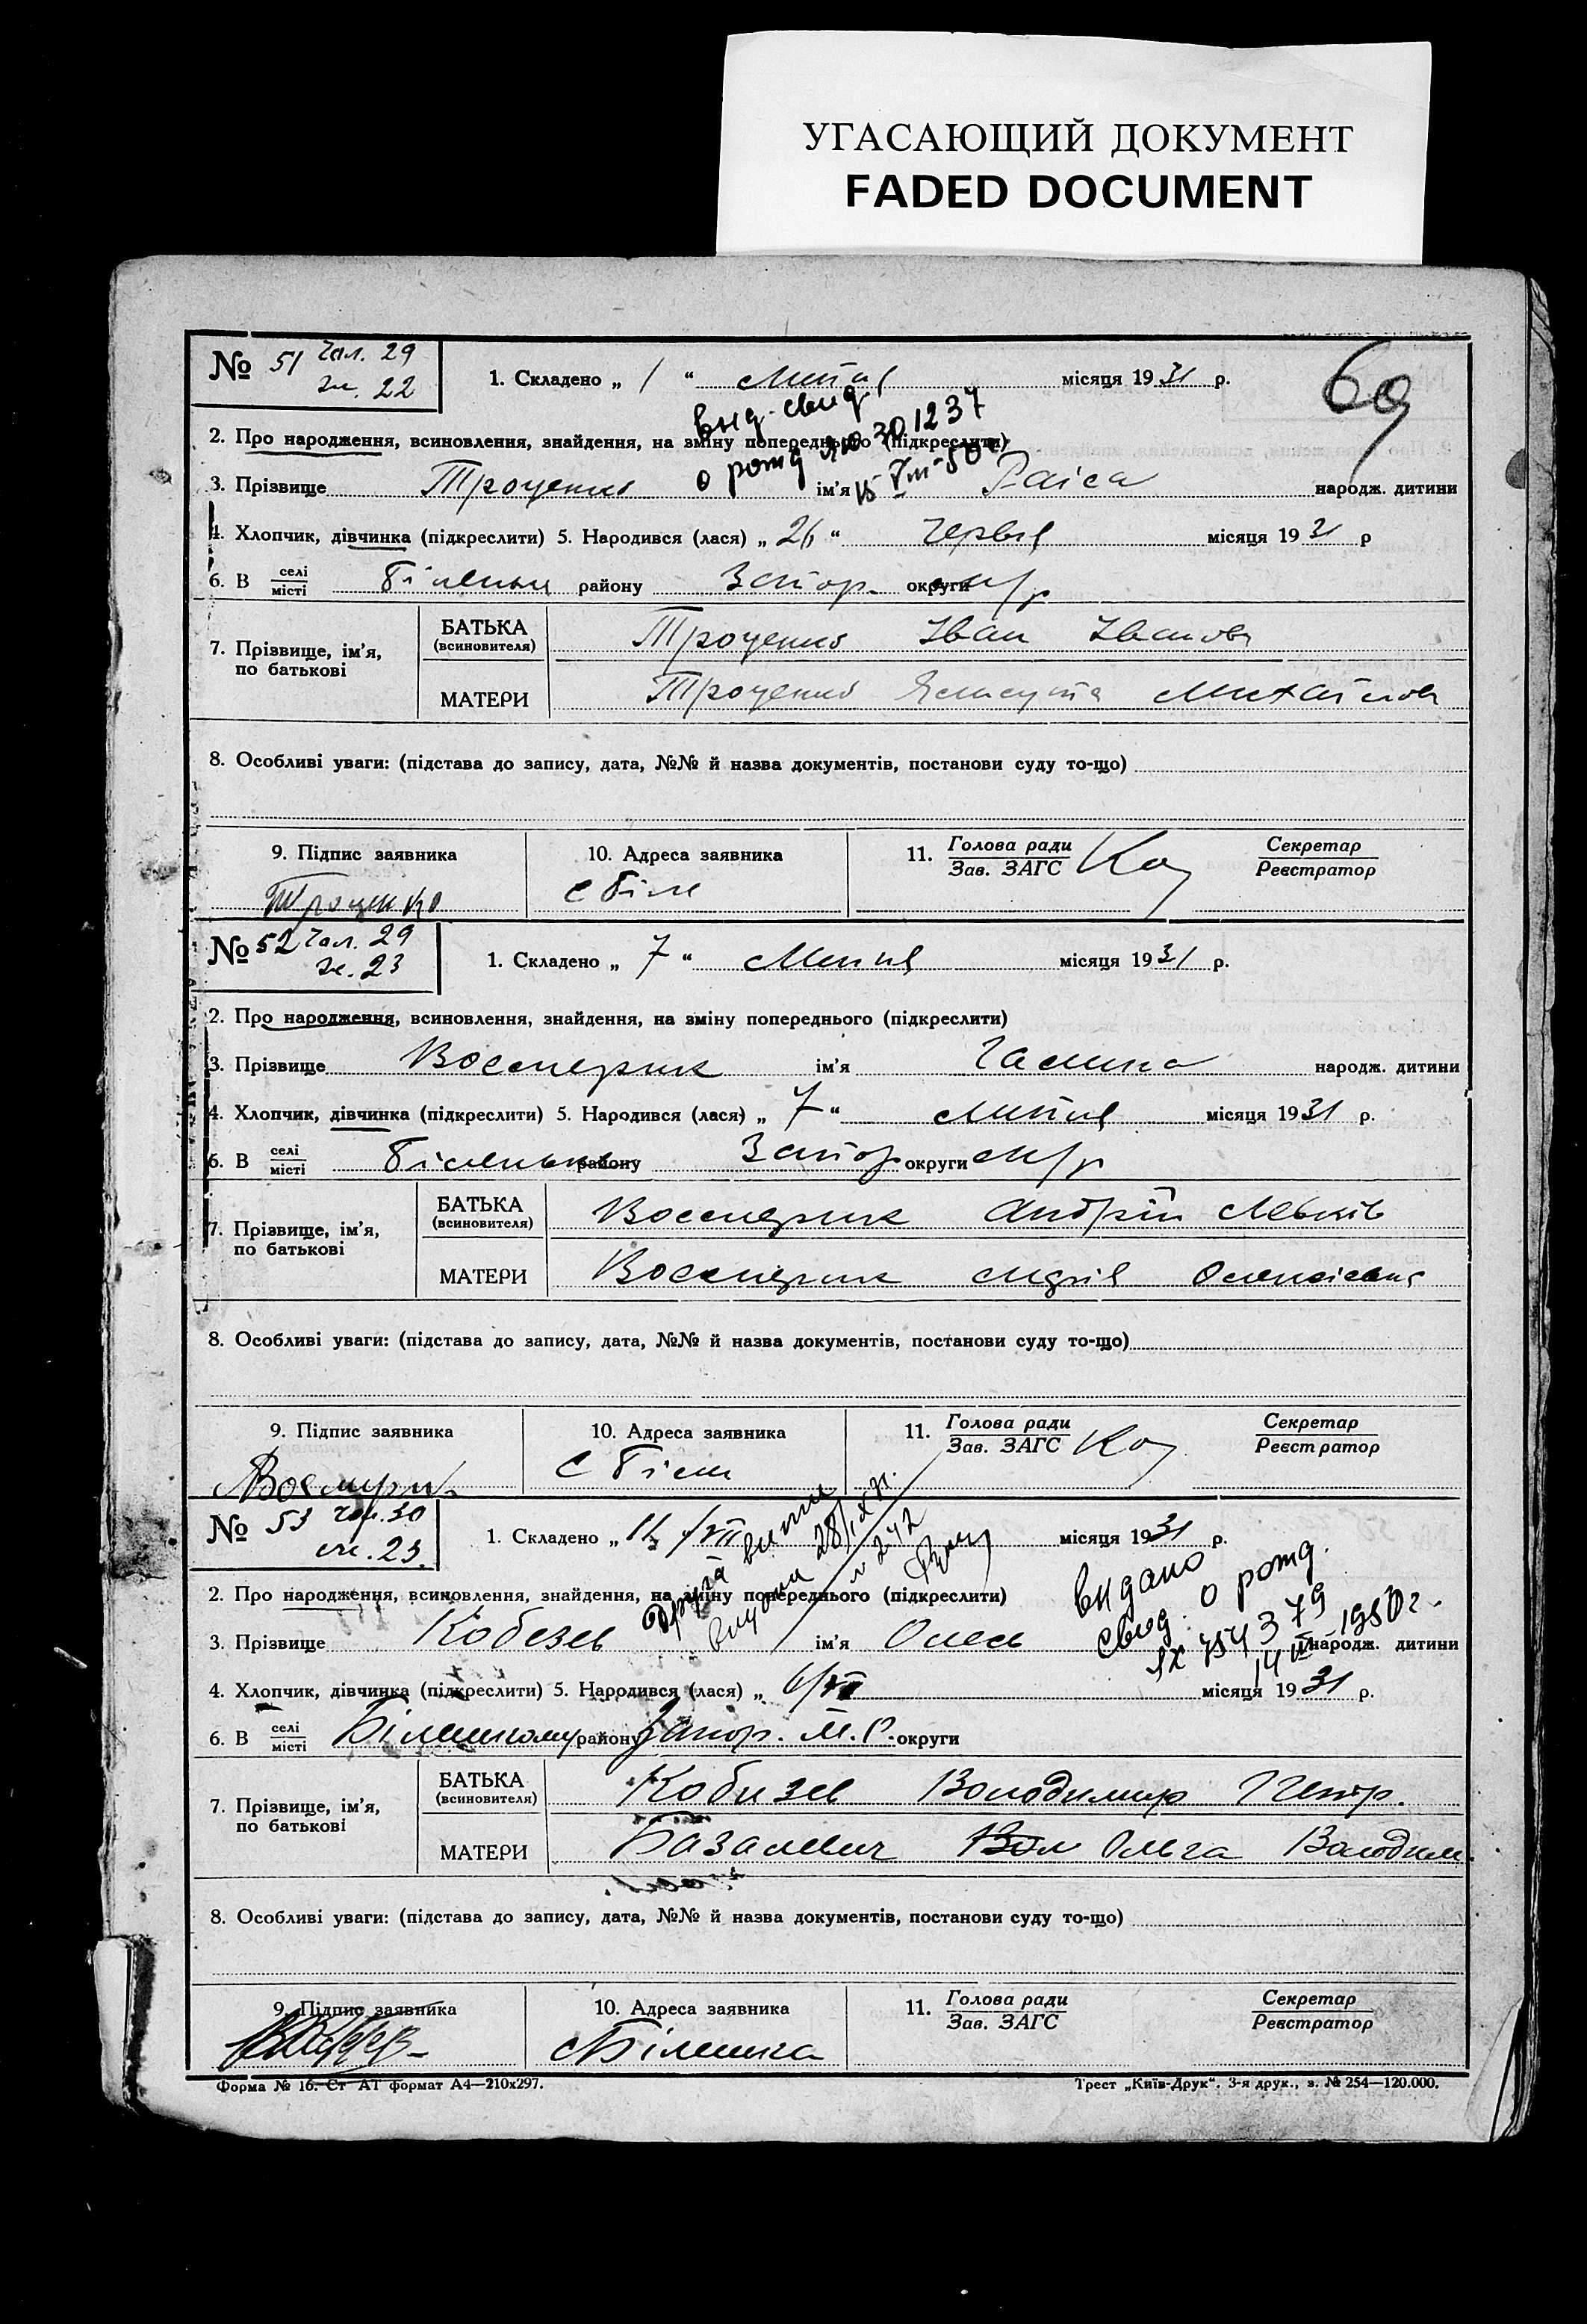 УГАСАЮЩИЙ ДОКУМЕНТ
FADED DOCUMENT
69
№ 51 Чол. 29
ж. 22
1. Складено „ 1 “ Липня місяця 1931 р.
выд. свид.
о рожд ЯЮ 301237
15 VIII-50 г
2. Про народження, всиновлення, знайдення, на зміну попереднього (підкреслити)
3. Прізвище Троценко ім’я Раіса народж. дитини
4. Хлопчик, дівчинка (підкреслити) 5. Народився (лася) „ 26 “ Червня місяця 1931 р
6. В селі/місті Біленьке району Запор. округи м/р
7. Прізвище, ім’я, по батькові
БАТЬКА (всиновителя) Троценко Іван Іванов
МАТЕРИ Троценко Михайлов
8. Особливі уваги: (підстава до запису, дата, №№ й назва документів, постанови суду то-що)
9. Підпис заявника 10. Адреса заявника 11. Голова ради/Зав. ЗАГС Секретар/Реєстратор
Троценко с Біле
№ 52 Чол. 29
ж. 23
1. Складено „ 7 “ Липня місяця 1931 р.
2. Про народження, всиновлення, знайдення, на зміну попереднього (підкреслити)
3. Прізвище ім’я Галина народж. дитини
4. Хлопчик, дівчинка (підкреслити) 5. Народився (лася) „ 7 “ Липня місяця 1931 р.
6. В селі/місті Біленьке району Запор округи м/р
7. Прізвище, ім’я, по батькові
БАТЬКА (всиновителя) Андрій Левків
МАТЕРИ Марія Олексієвна
8. Особливі уваги: (підстава до запису, дата, №№ й назва документів, постанови суду то-що)
9. Підпис заявника 10. Адреса заявника 11. Голова ради/Зав. ЗАГС Секретар/Реєстратор
с Біле
№ 53 Чол. 30
ж. 23.
1. Складено „ /VII місяця 1931 р.
2. Про народження, всиновлення, знайдення, на зміну попереднього (підкреслити)
Друга
28/IX
№ 242
видано
свид. о рожд.
ЯХ 754379
14 1950 г.
3. Прізвище Кобезев ім’я Олесь народж. дитини
4. Хлопчик, дівчинка (підкреслити) 5. Народився (лася) „ 6/VII місяця 1931 р.
6. В селі/місті району Запор. М. Р. округи
7. Прізвище, ім’я, по батькові
БАТЬКА (всиновителя) Кобизев Володимир Петр.
МАТЕРИ Базалевич Ольга Володим.
8. Особливі уваги: (підстава до запису, дата, №№ й назва документів, постанови суду то-що)
9. Підпис заявника 10. Адреса заявника 11. Голова ради/Зав. ЗАГС Секретар/Реєстратор
Форма № 16. Ст АТ формат А4—210х297. Трест „Київ-Друк“. 3-я друк., з. № 254—120.000.